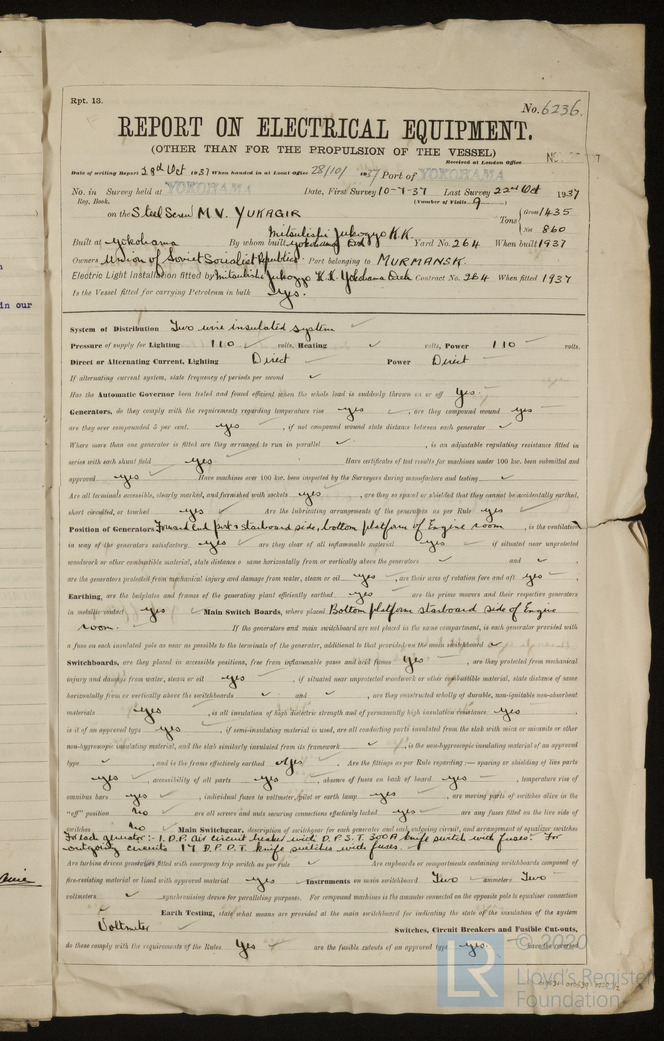 Rpt. 13.
No. 6236.
REPORT ON ELECTRICAL EQUIPMENT.
(OTHER THAN FOR THE PROPULSION OF THE VESSEL)
Received at London Office
Date of writing Report 28th Oct 1937 When handed in at Local Office 28/10/ 1937 Port of YOKOHAMA
No. in Survey held at YOKOHAMA Date, First Survey 10-7-37 Last Survey 22nd Oct 1937
Reg. Book. (Number of Visits 9)
on the Steel Screw M.V. YUKAGIR Tons { Gross 1435
Net 860
Built at Yokohama By whom built Mitsubishi Jukogyo K.K. Yokohama Dock Yard No. 264 When built 1937
Owners Union of Soviet Socialist Republics Port belonging to MURMANSK.
Electric Light Installation fitted by Mitsubishi Jukogyo K.K. Yokohama Dock Contract No. 264 When fitted 1937
Is the Vessel fitted for carrying Petroleum in bulk Yes.
System of Distribution Two wire insulated system
Pressure of supply for Lighting 110 volts, Heating ✓ volts, Power 110 volts.
Direct or Alternating Current, Lighting Direct Power Direct
If alternating current system, state frequency of periods per second ✓
Has the Automatic Governor been tested and found efficient when the whole load is suddenly thrown on or off Yes.
Generators, do they comply with the requirements regarding temperature rise yes, are they compound wound yes
are they over compounded 5 per cent. yes, if not compound wound state distance between each generator ✓
Where more than one generator is fitted are they arranged to run in parallel ✓, is an adjustable regulating resistance fitted in
series with each shunt field yes Have certificates of test results for machines under 100 kw. been submitted and
approved yes Have machines over 100 kw. been inspected by the Surveyors during manufacture and testing ✓
Are all terminals accessible, clearly marked, and furnished with sockets yes, are they so spaced or shielded that they cannot be accidentally earthed,
short circuited, or touched yes Are the lubricating arrangements of the generators as per Rule yes
Position of Generators Forward end port & starboard side, bottom platform of Engine room, is the ventilation
in way of the generators satisfactory yes are they clear of all inflammable material yes if situated near unprotected
woodwork or other combustible material, state distance of same horizontally from or vertically above the generators ✓ and ✓,
are the generators protected from mechanical injury and damage from water, steam or oil yes, are their axes of rotation fore and aft yes
Earthing, are the bedplates and frames of the generating plant efficiently earthed yes are the prime movers and their respective generators
in metallic contact yes Main Switch Boards, where placed Bottom platform starboard side of Engine
room. If the generators and main switchboard are not placed in the same compartment, is each generator provided with
a fuse on each insulated pole as near as possible to the terminals of the generator, additional to that provided on the main switchboard ✓
Switchboards, are they placed in accessible positions, free from inflammable gases and acid fumes Yes, are they protected from mechanical
injury and damage from water, steam or oil yes, if situated near unprotected woodwork or other combustible material, state distance of same
horizontally from or vertically above the switchboards ✓ and ✓, are they constructed wholly of durable, non-ignitable non-absorbent
materials yes, is all insulation of high dielectric strength and of permanently high insulation resistance yes,
is it of an approved type yes, if semi-insulating material is used, are all conducting parts insulated from the slab with mica or micanite or other
non-hygroscopic insulating material, and the slab similarly insulated from its framework ✓, is the non-hygroscopic insulating material of an approved
type ✓, and is the frame effectively earthed yes. Are the fittings as per Rule regarding:— spacing or shielding of live parts
yes, accessibility of all parts yes, absence of fuses on back of board yes, temperature rise of
omnibus bars yes, individual fuses to voltmeter, pilot or earth lamp yes, are moving parts of switches alive in the
"off" position no are all screws and nuts securing connections effectively locked yes are any fuses fitted on the live side of
switches no Main Switchgear, description of switchgear for each generator and each outgoing circuit, and arrangement of equaliser switches
For each generator:- 1 D.P. air circuit breaker with D.P.S.T. 300A. knife switch with fuses. For
outgoing circuits 17 D.P.D.T. knife switches with fuses.
Are turbine driven generators fitted with emergency trip switch as per rule ✓ Are cupboards or compartments containing switchboards composed of
fire-resisting material or lined with approved material yes Instruments on main switchboard Two ammeters Two
voltmeters ✓ synchronising device for paralleling purposes. For compound machines is the ammeter connected on the opposite pole to equaliser connection
✓ Earth Testing, state what means are provided at the main switchboard for indicating the state of the insulation of the system
Voltmeter Switches, Circuit Breakers and Fusible Cut-outs,
do these comply with the requirements of the Rules Yes are the fusible cutouts of an approved type yes. have the reversed
in our
© 2020
Lloyd's Register
Foundation